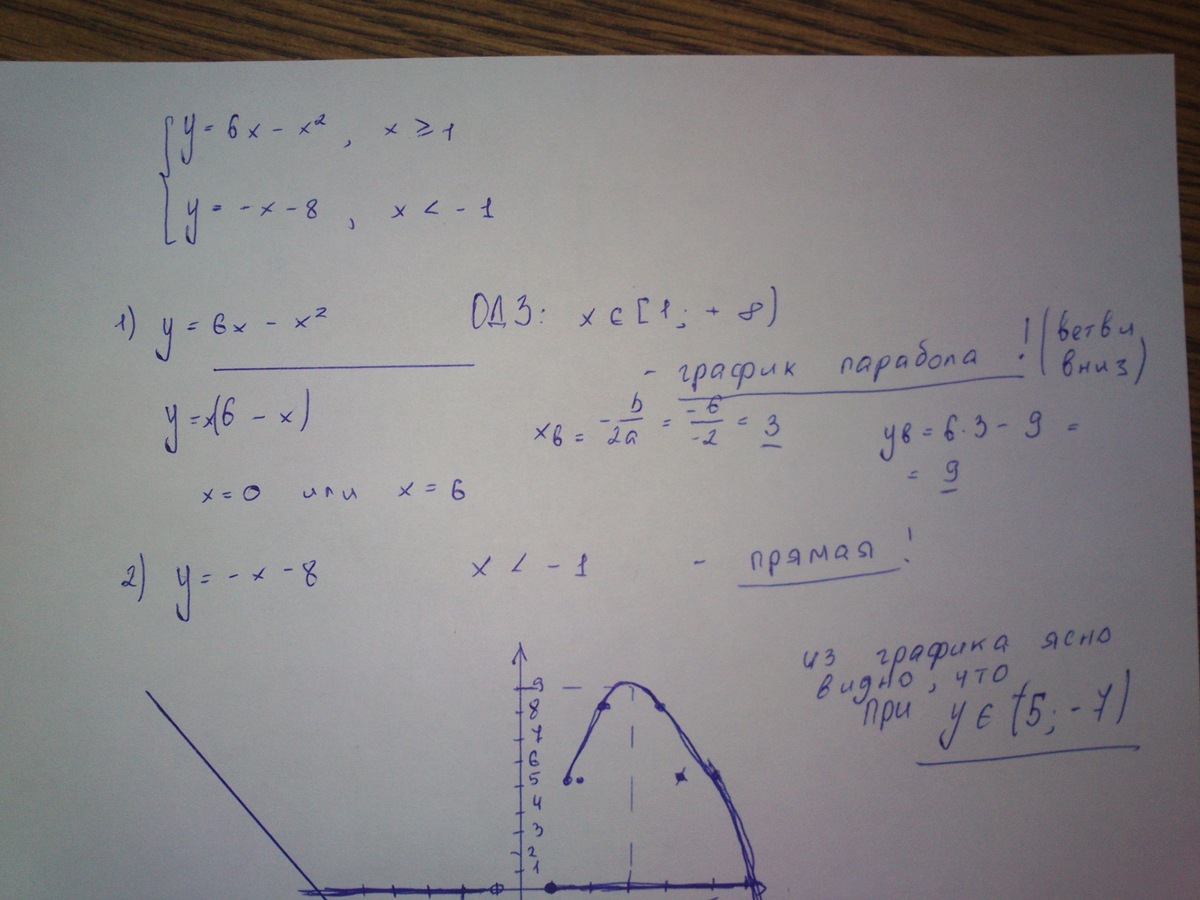 y = 6x - x², x ≥ 1
y = -x - 8, x < -1
1) y = 6x - x² ОДЗ: x ∈ [1; + ∞)
- график парабола! (ветви вниз)
y = x(6 - x) xв = -b/2a = -6/-2 = 3 yв = 6·3 - 9 =
= 9
x = 0 или x = 6
2) y = -x - 8 x < -1 - прямая!
из графика ясно
видно, что
при y ∈ (5; -7)
9
8
7
6
5
4
3
2
1